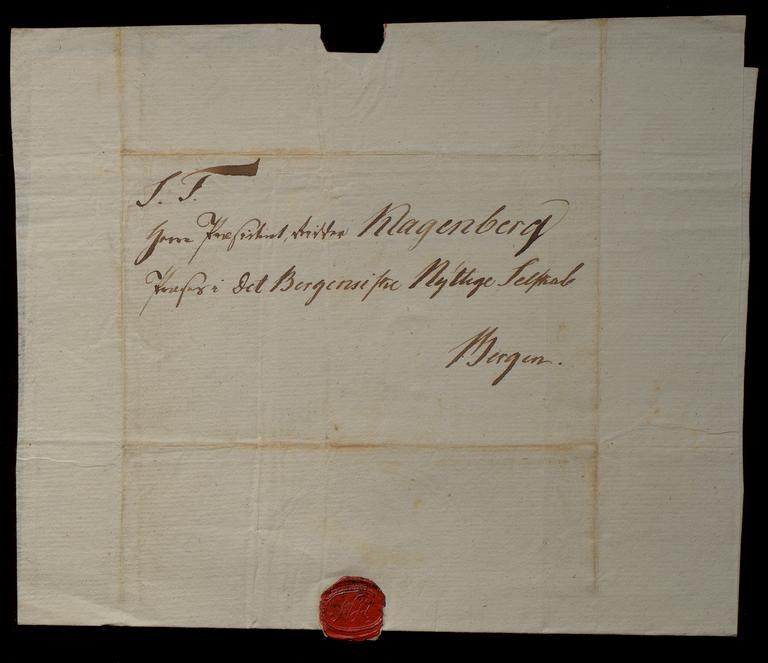 S. T.
Herr Præsident, Ridder Klagenberg
Præses i det Bergensiske Nyttige Selskab
Bergen.